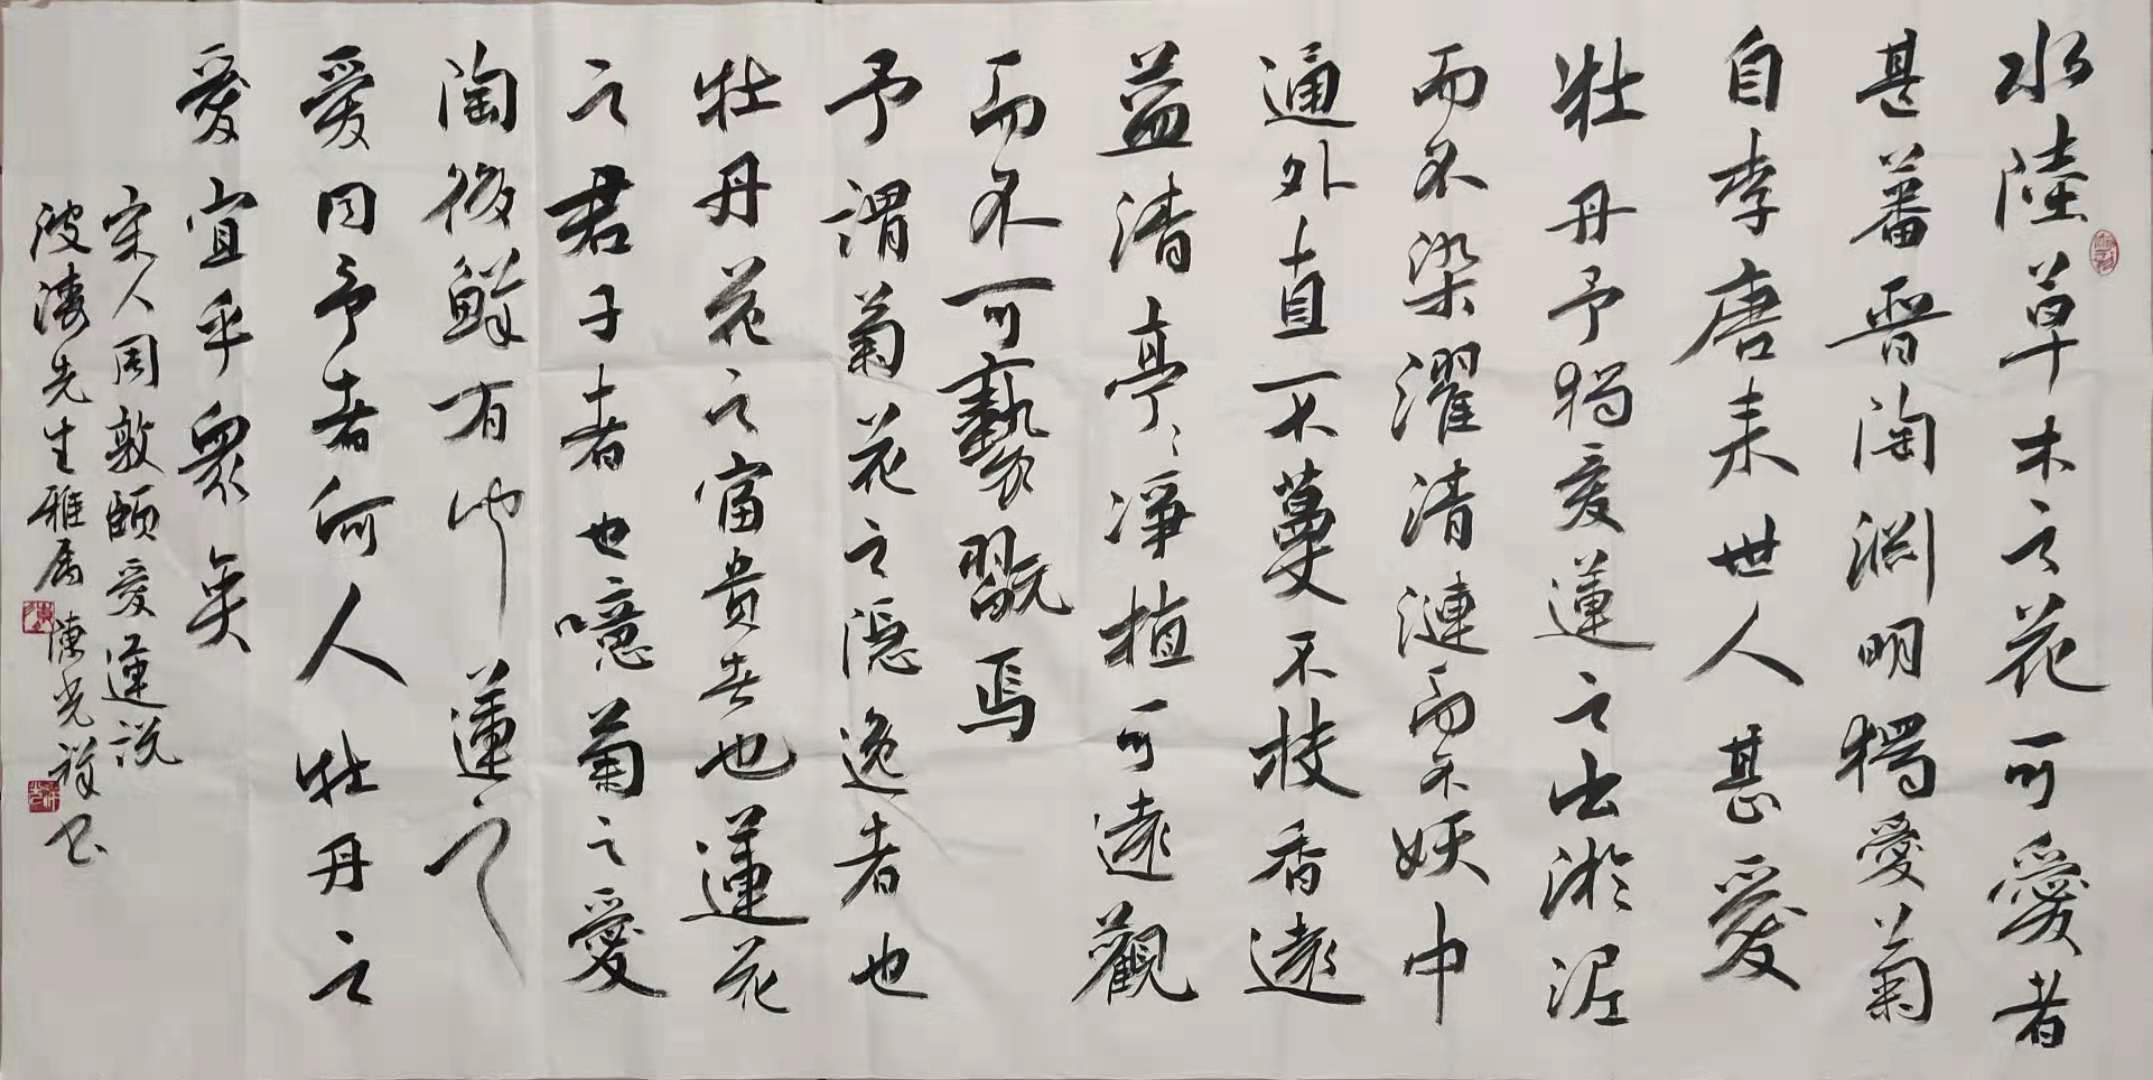 水陸草木之花可愛者
甚蕃晉陶淵明獨愛菊
自李唐来世人甚愛
牡丹予獨愛蓮之出淤泥
而不染濯清漣而不妖中
通外直不蔓不枝香遠
益清亭〻淨植可遠觀
而不可褻翫焉
予謂菊花之隱逸者也
牡丹花之富貴者也蓮花
之君子者也噫菊之愛
陶後鮮有聞蓮之
愛同予者何人牡丹之
愛宜乎衆矣
宋人周敦頤愛蓮說
波濤先生雅属 陳光祥书